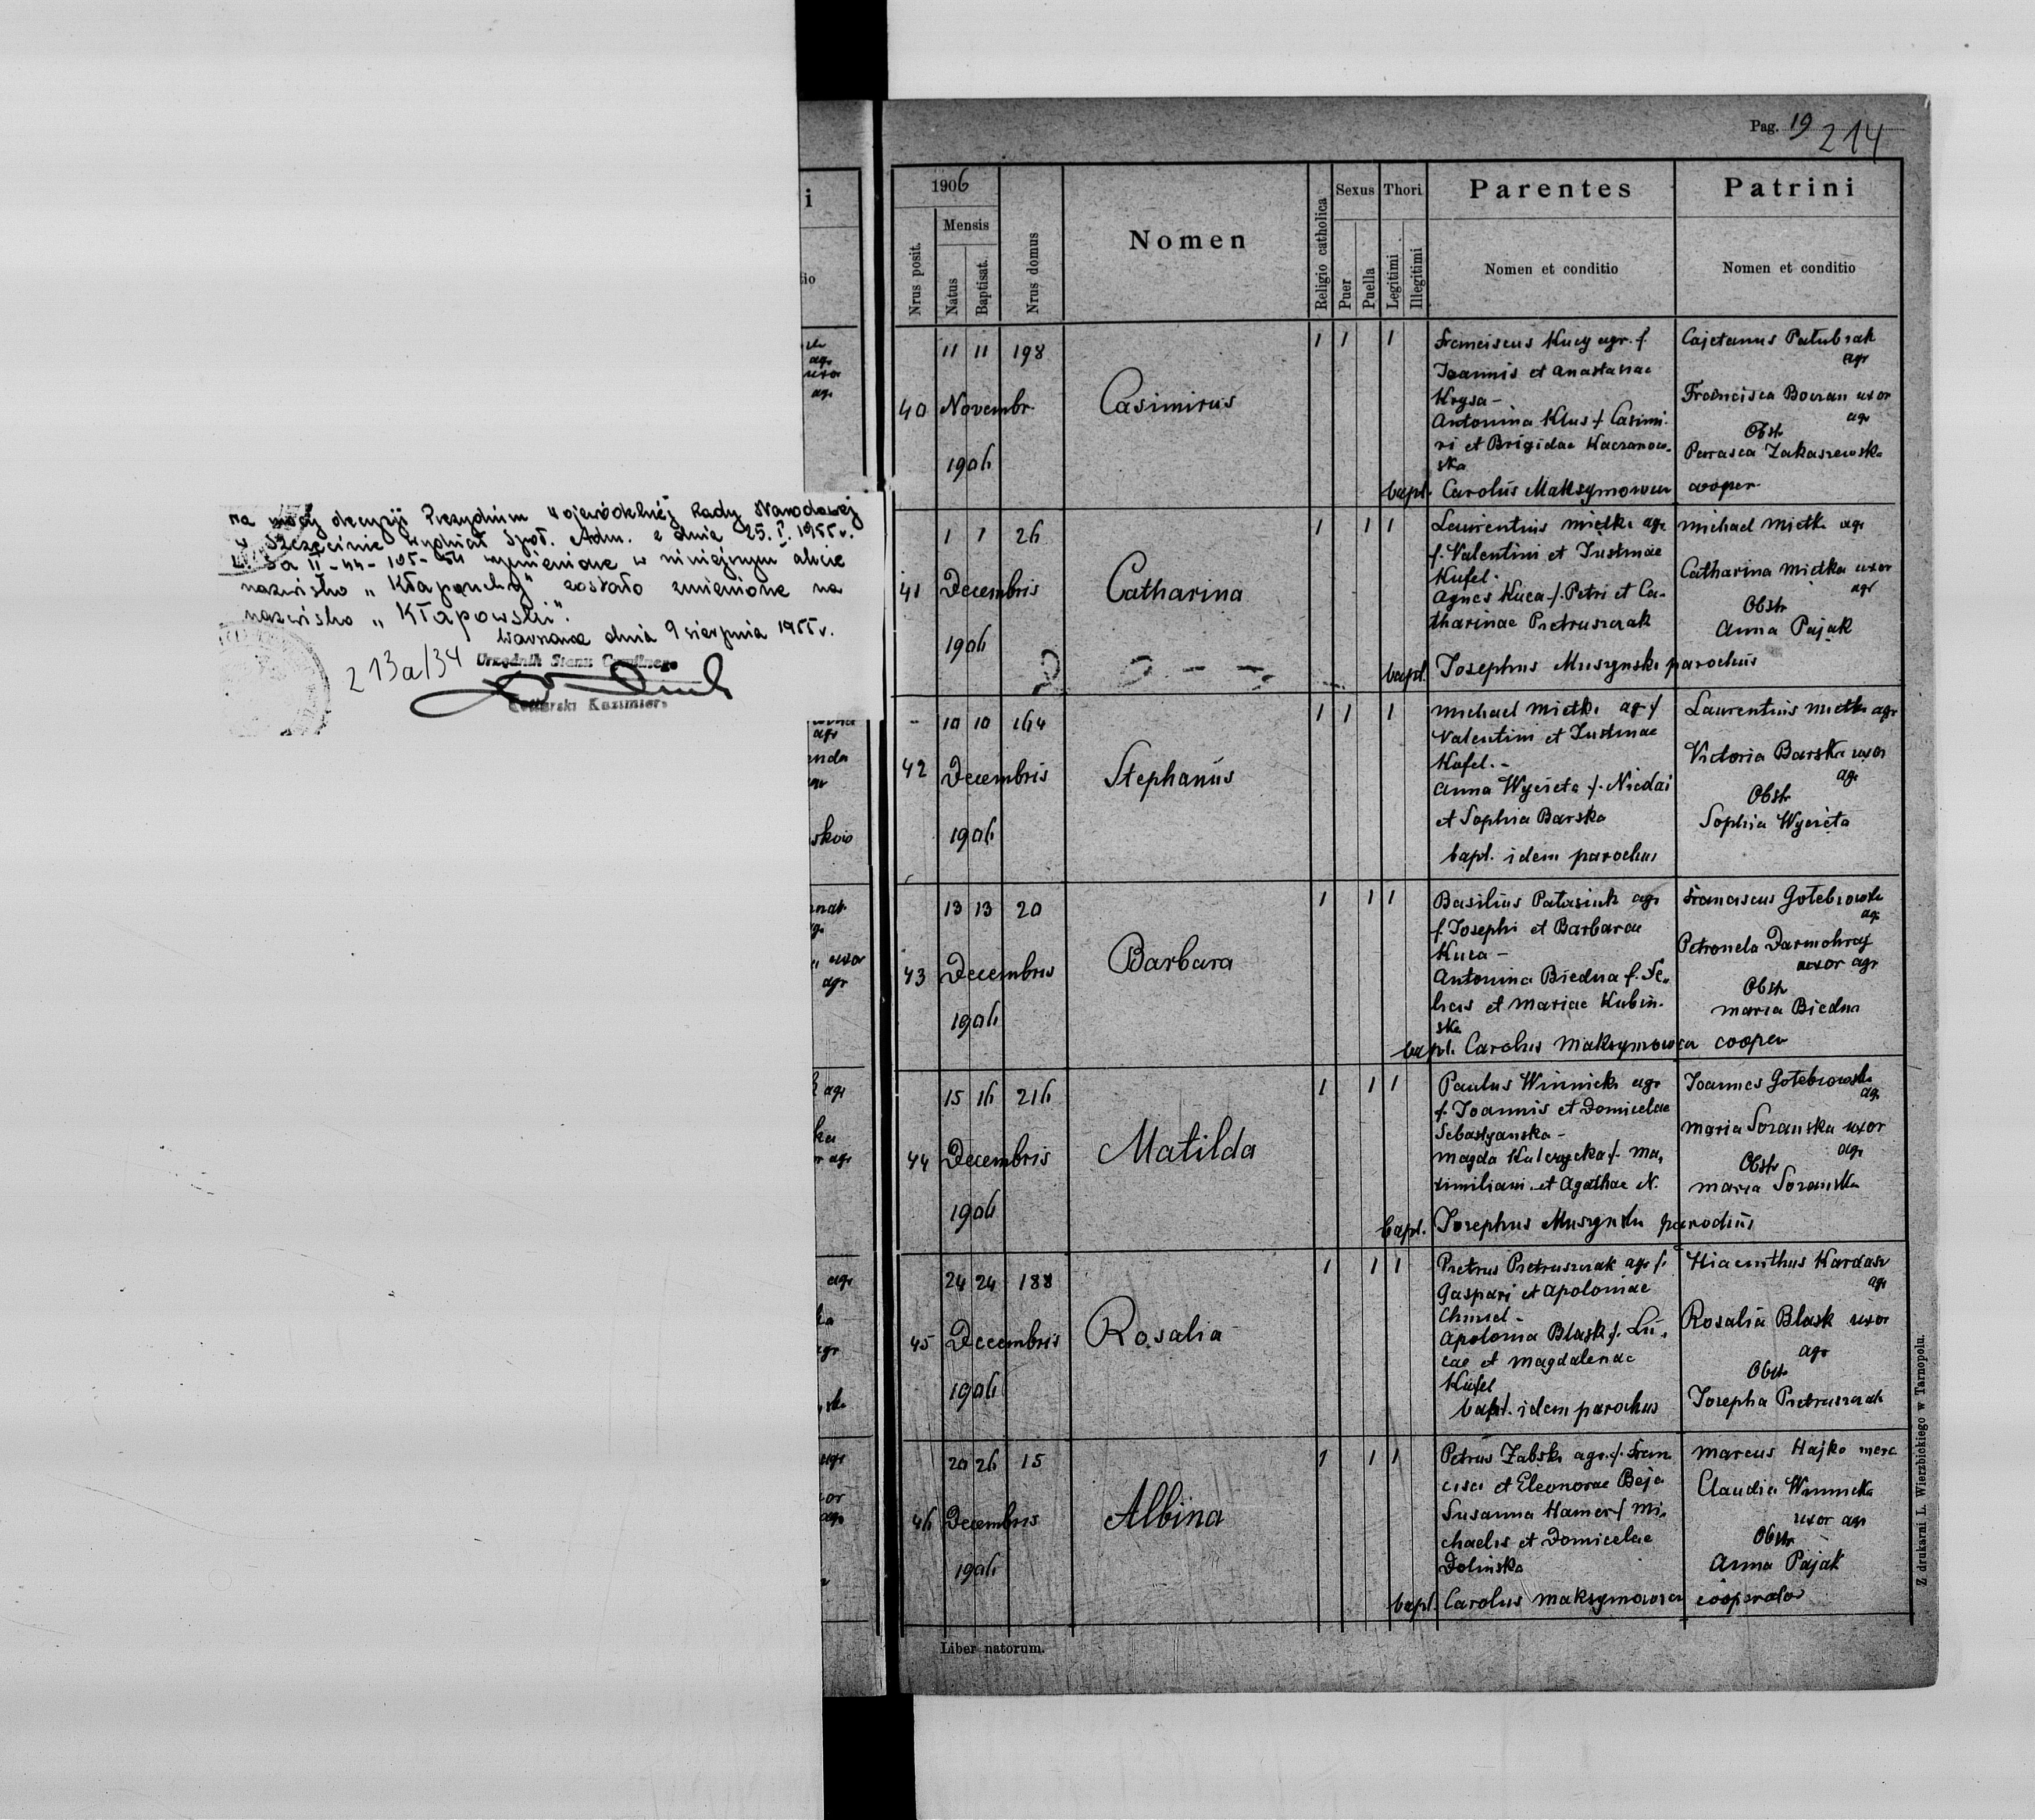 na mocy decyzji Prezydium Wojewódzkiej Rady Narodowej
w Szczecinie wydział Społ. Adm. z dnia 25.I.1955 r.
Sa II-44-105-54 wymienione w niniejszym akcie
nazwisko „ Kłapouchy" zostało zmienione na
nazwisko „ Kłapowski".
Warszawa dnia 9 sierpnia 1955 r.
213a/34
Urzędnik Stanu Cywilnego
Kazimierz
Pag. 19
214
1906
Nrus posit.
Mensis
Natus
Baptisat.
Nrus domus
Nomen
Religio catholica
Sexus
Puer
Puella
Thori
Legitimi
Illegitimi
Parentes
Nomen et conditio
Patrini
Nomen et conditio
40
11 11 198
Novembr.
1906
Casimirus
1 1 1
Franciscus Kucy agr. f.
Joannis et Anastasiae
Krysa -
Antonina Klus f. Casimi-
ri et Brigidae Kaczanow-
ska
bapt. Carolus Maksymowicz cooper
Cajetanus Patubiak
agr
Francisca Bouran uxor
agr
Obst
Parasca Zakaszewska
41
1 1 26
Decembris
1906
Catharina
1 1 1
Laurentius Mietki agr
f. Valentini et Justinae
Kufel.
Agnes Kuca f. Petri et Ca-
tharinae Pietruszczak
bapt. Josephus Muszynski parochus
Michael Mietki agr
Catharina Mietka uxor
agr
Obstr
Anna Pająk
42
10 10 164
Decembris
1906
Stephanus
1 1 1
Michael Mietki agr f
Valentini et Justinae
Kufel. -
Anna Wycista f.
et Sophia Barska
bapt. idem parochus
Laurentius Mietki agr
Victoria Barska uxor
agr
Obstr
Sophia Wycista
43
13 13 20
Decembris
1906
Barbara
1 1 1
Basilius Patasiuk agr
f. Josephi et Barbarae
Kuca -
Antonina Biedna f. Fe-
licis et Mariae Kubin-
ska
bapt. Carolus Maksymowicz cooper
Franciscus Gołebiowski
agr
Petronela Darmohraj
uxor agr
Obstr
Maria Biedna
44
15 16 216
Decembris
1906
Matilda
1 1 1
Paulus Winnicki agr
f. Joannis et Domicelae
Sebastyanska -
Magda Kulczycka f. Ma-
ximiliani et Agathae N.
bapt. Josephus Muszynski parochus
Joannes Gołebiowski
agr
Maria Soranska uxor
agr
Obstr
Maria Soranska
45
24 24 188
Decembris
1906
Rosalia
1 1 1
Pietrus Pietruszczak agr f.
Gaspari et Apoloniae
Chmiel -
Apolonia Blask f. Lu-
cae et Magdalenae
Kufel
bapt. idem parochus
Hiacinthus Kardasz
agr
Rosalia Blask uxor
agr
Obstr
Josepha Pietruszczak
46
20 26 15
Decembris
1906
Albina
1 1 1
Petrus Zabski agr. f. Fran
cisci et Eleonorae Beja
Susanna Hamer f Mi-
chaelis et Domicelae
Dolinska
bapt. Carolus Maksymowicz cooperator
Marcus Hajko merc
Claudia Winnicka
uxor agr
Obstr
Anna Pająk
Liber natorum.
Z drukarni L. Wierzbickiego w Tarnopolu.